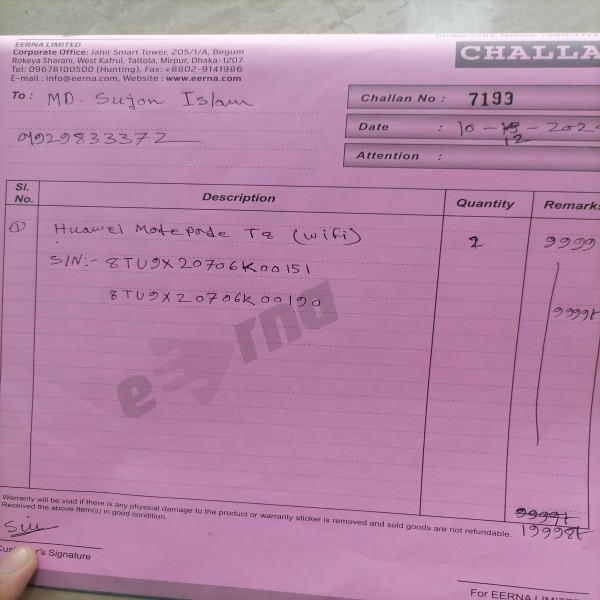 EERNA LIMITED
Corporate Office: Jahir Smart Tower, 205/1/A, Begum
Rokeya Sharani, West Kafrul, Taltola, Mirpur, Dhaka-1207
Tel: 09678100500 (Hunting), Fax: +8802-9141986
E-mail : info@eerna.com, Website : www.eerna.com
CHALLA
To: MD. Sujon Islam
01929833372
Challan No : 7193
Date : 10 - 12 - 202
Attention :
Sl. No. Description Quantity Remarks
1 Huawei Matepade T8 (wifi) 2 9999
S/N:- 8TU9X20706K00151
8TU9X20706K00190 9999t
eerna
Warranty will be void if there is any physical damage to the product or warranty sticker is removed and sold goods are not refundable.
Received the above item(s) in good condition.
9999t
19998t
Customer's Signature
For EERNA LIMITE